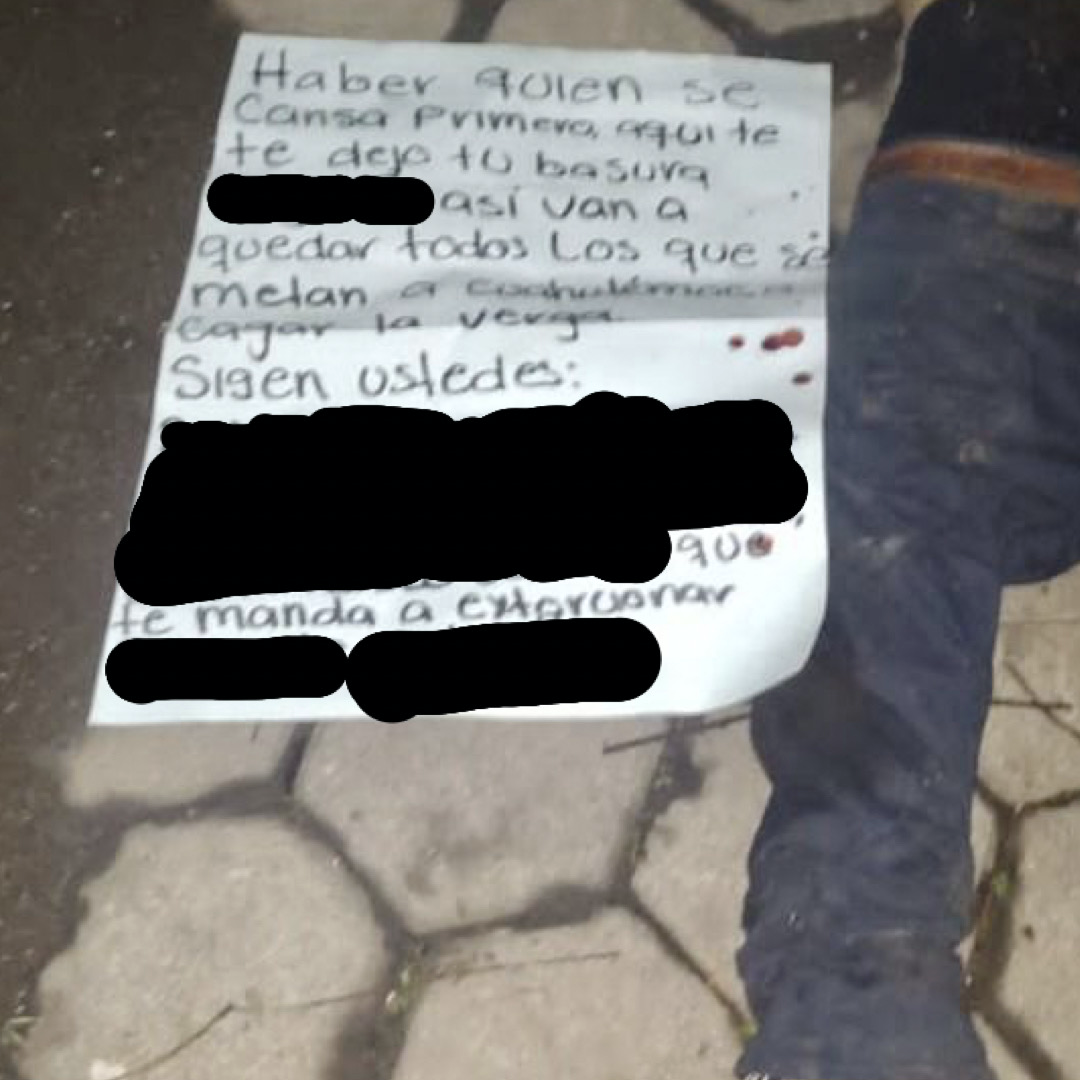 Haber quien se
Cansa Primero, aqui te
te dejo tu basura
así van a
quedar todos Los que se
metan a Cuahutémoc a
cagar la verga
Sigen ustedes:
que
te manda a extorcionar